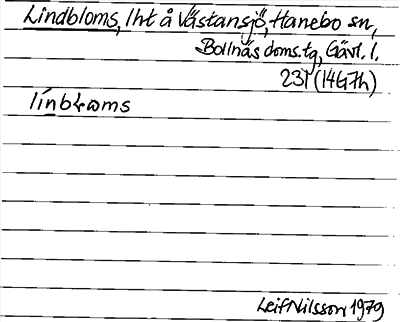 Lindbloms, lht å Västansjö, Hanebo sn,
Bollnäs doms.tg, Gävl. l.
231 (14G7h)
línbɫɷms
Leif Nilsson 1979